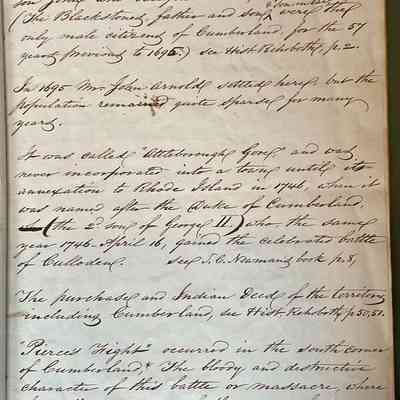 (The Blackstones, father and son, were the
only male citizens of Cumberland, for the 57
years previous to 1695.) see Hist. Rehoboth, p. 2.
In 1695 Mr. John Arnold settled here, but the
population remained quite sparse for many
years.
It was called "Attleborough Gore," and was
never incorporated into a town until its
annexation to Rhode Island in 1746, when it
was named after the Duke of Cumberland,
(the 2d son of George II.) who, the same
year 1746. April 16, gained the celebrated battle
of Culloden. see J. C. Newman's book p. 8,
The purchase and Indian Deed of the territory
including Cumberland, see Hist. Rehoboth, p. 50, 51.
"Pierce's Fight" occurred in the south corner
of Cumberland. The bloody and destructive
character of this battle or massacre, where